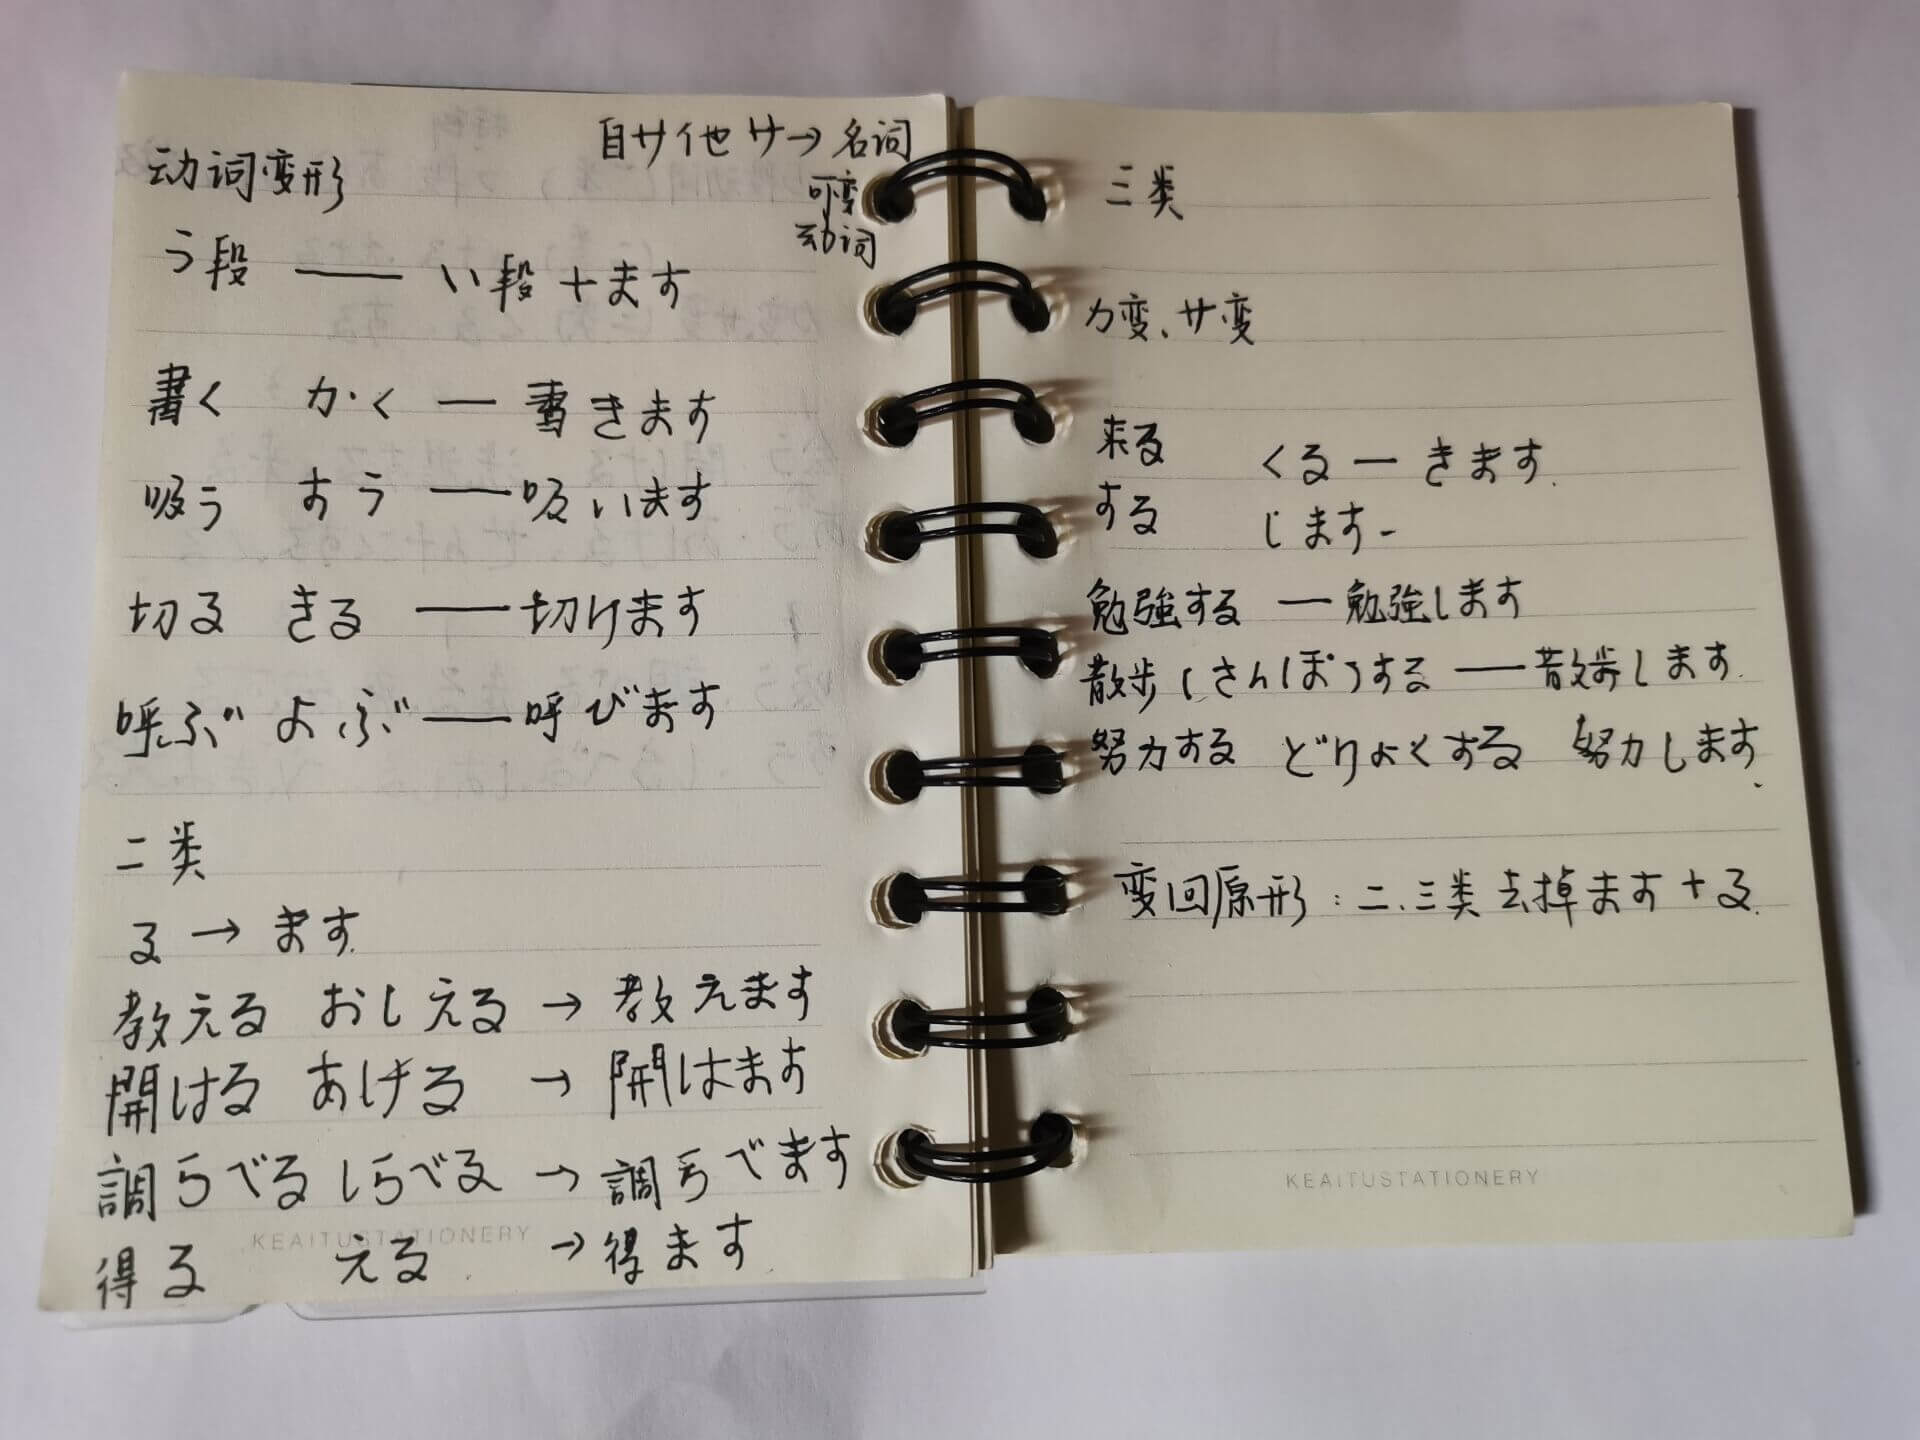 自サ他サ→名词
可变
动词
动词变形
う段 —— い段+ます
書く かく — 書きます
吸う すう — 吸います
切る きる — 切ります
呼ぶ よぶ — 呼びます
二类
る→ます
教える おしえる → 教えます
開ける あげる → 開けます
調らべる しらべる → 調らべます
得る える → 得ます
KEAITUSTATIONERY
三类
カ変、サ変
来る くる — きます
する します-
勉強する — 勉強します
散歩(さんぽ)する — 散歩します
努力する どりょくする 努力します
变回原形:二、三类去掉ます+る
KEAITUSTATIONERY